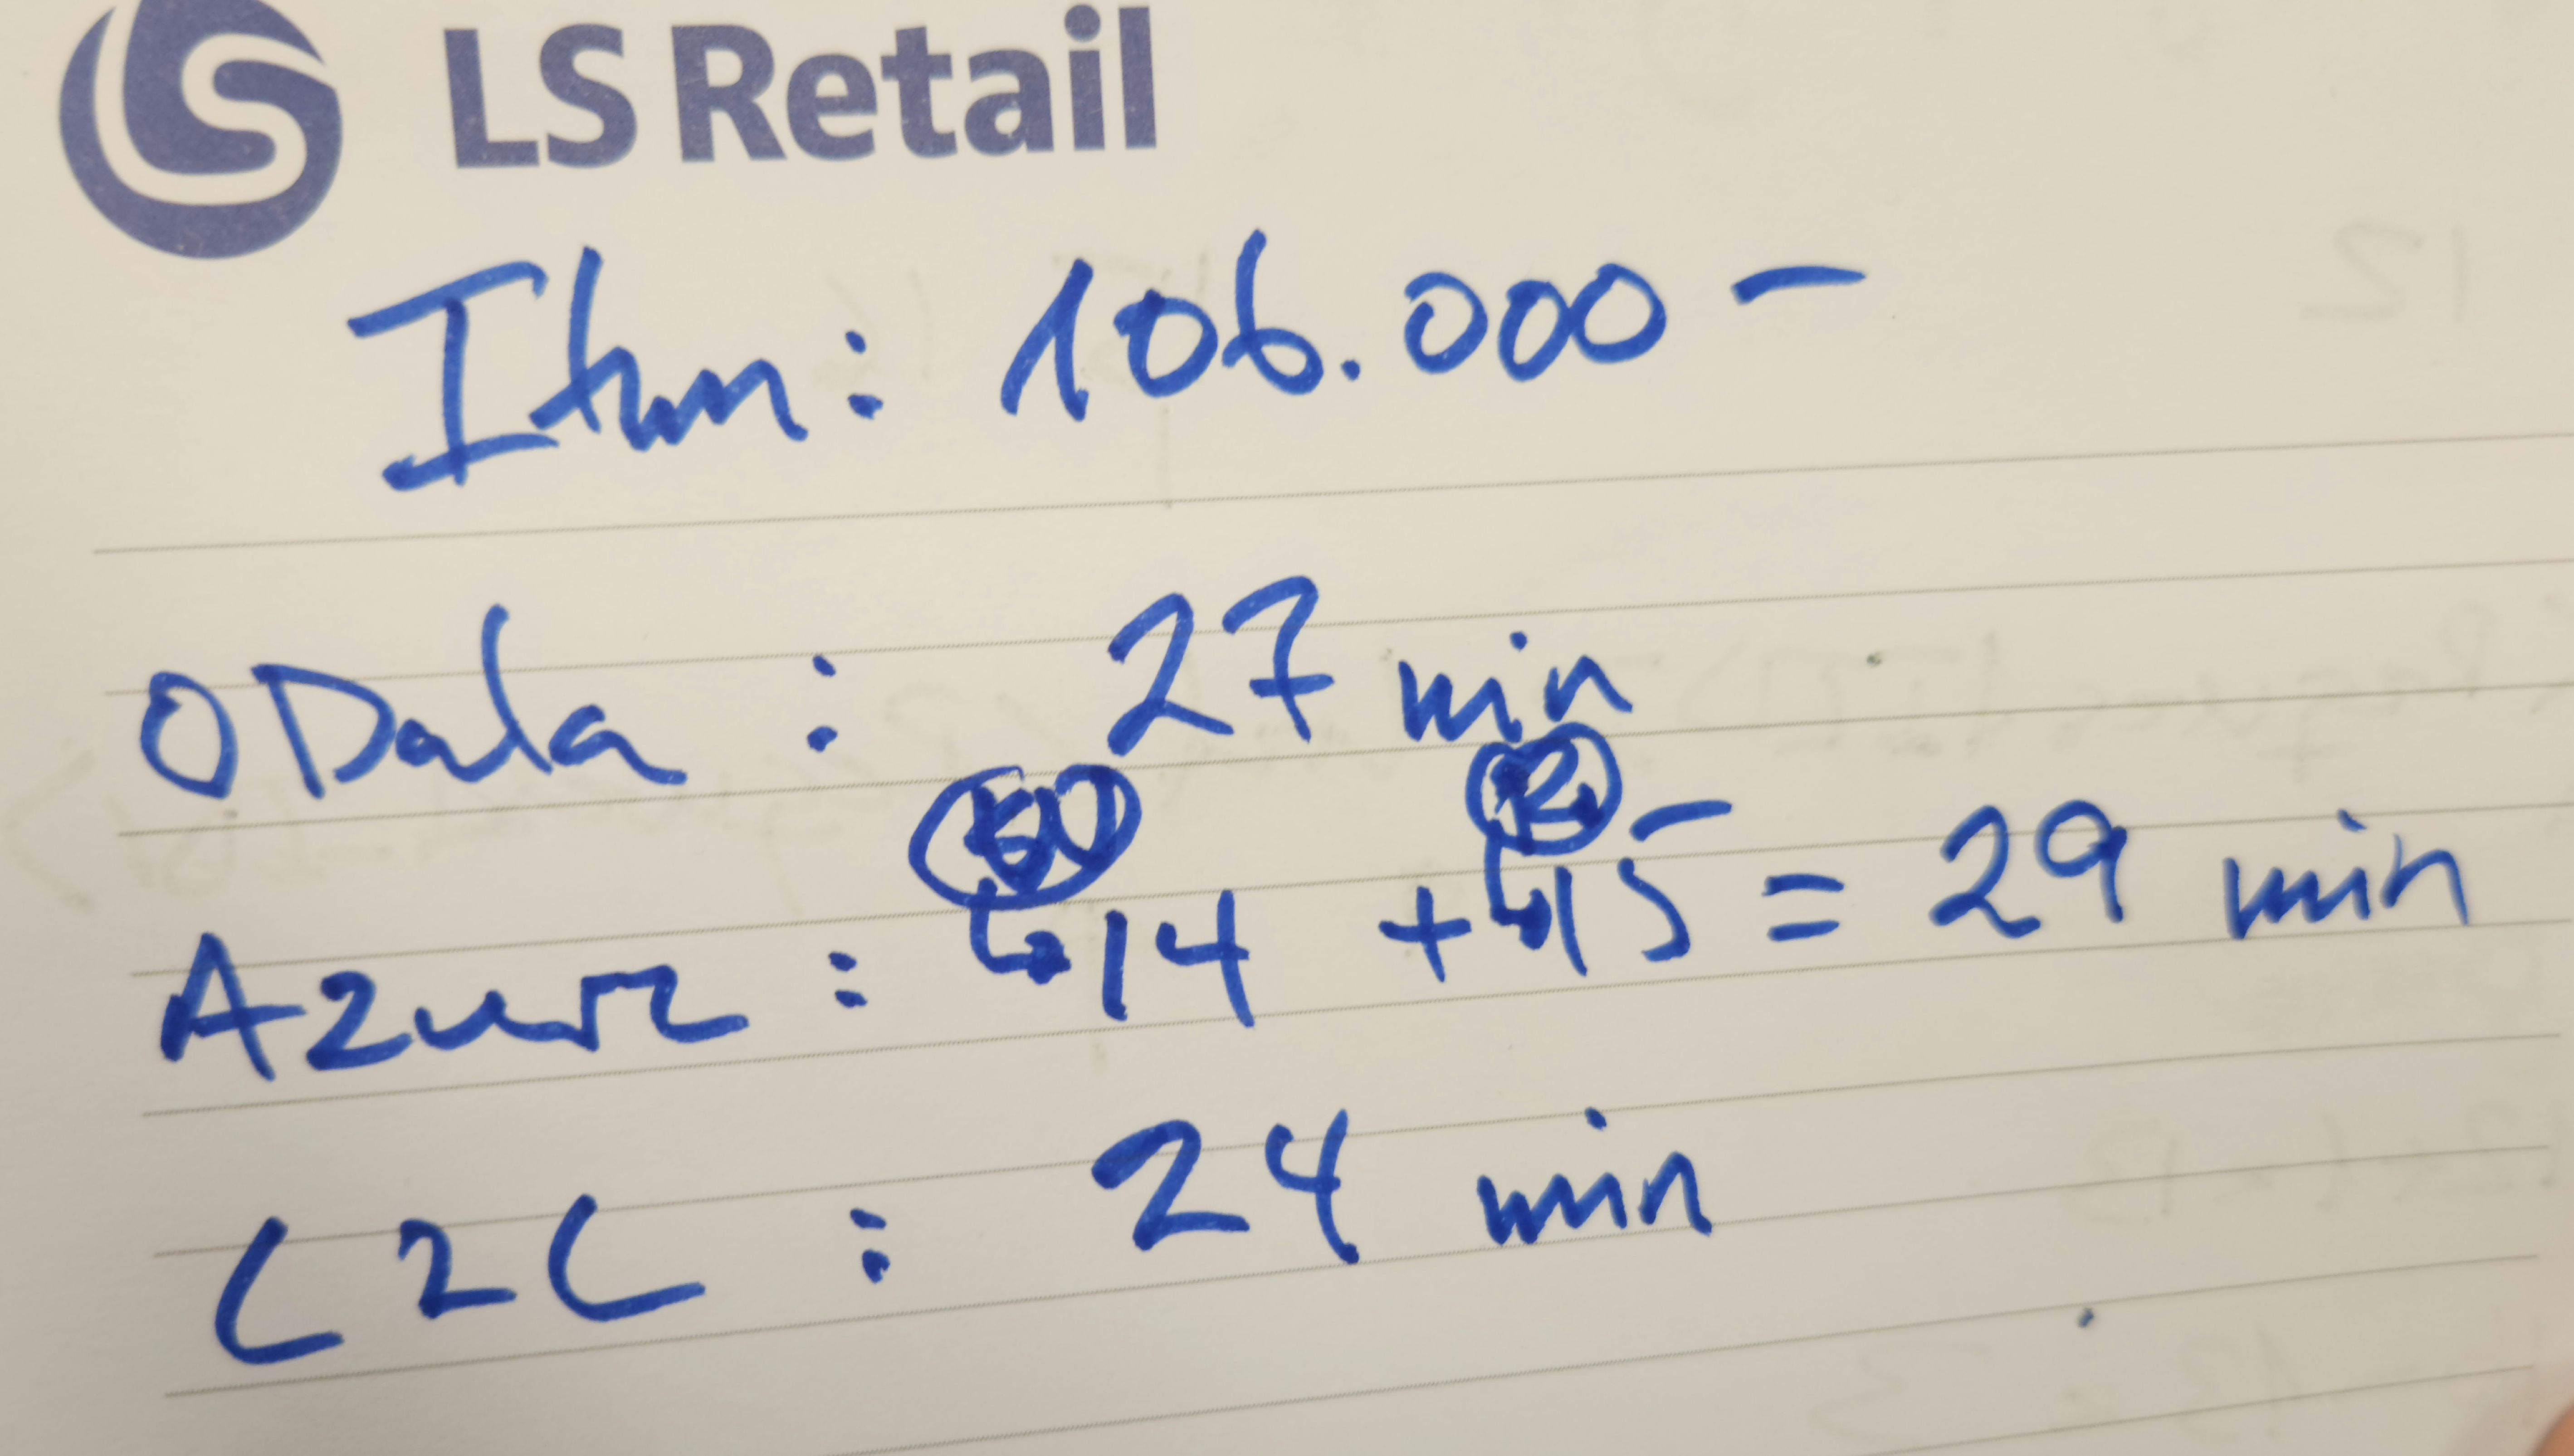 LS Retail
Item: 106.000 –
OData : 27 min
Azure : 14 + 15 = 29 min
C2C : 24 min